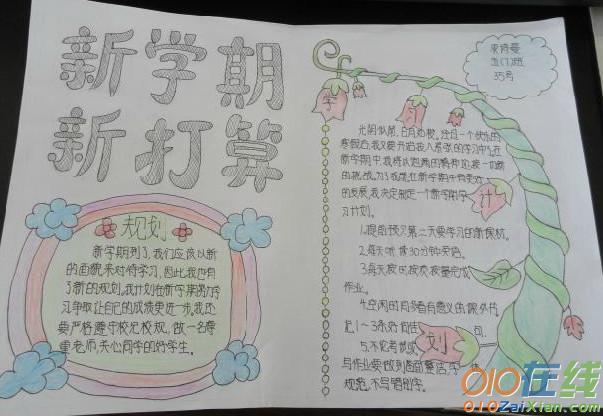 新学期
新打算
规划
新学期到了,我们应该以新
的面貌来对待学习,因此,我也有
了新的规划。我计划在新学期努力学
习,争取让自己的成绩更进一步。我还
要严格遵守校纪校规,做一名尊
重老师,关心同学的好学生。
五(7)班
35号
学
习
计
划
光阴似箭,日月如梭。经过一个快乐的
寒假后,我又要开始投入紧张的学习中了。在
新学期中,我将以饱满的精神迎接一切新
的挑战。为了我能在新学期中有更好
的发展,我决定制定一个新学期学
习计划。
1.提前预习第二天要学习的新课材。
2.每天听读30分钟英语。
3.每天按时按质按量完成
作业。
4.空闲的时多看有意义的课外书
写作业要做到卷面整洁,字体
规范,不写错别字。
010在线
010ZaiXian.com